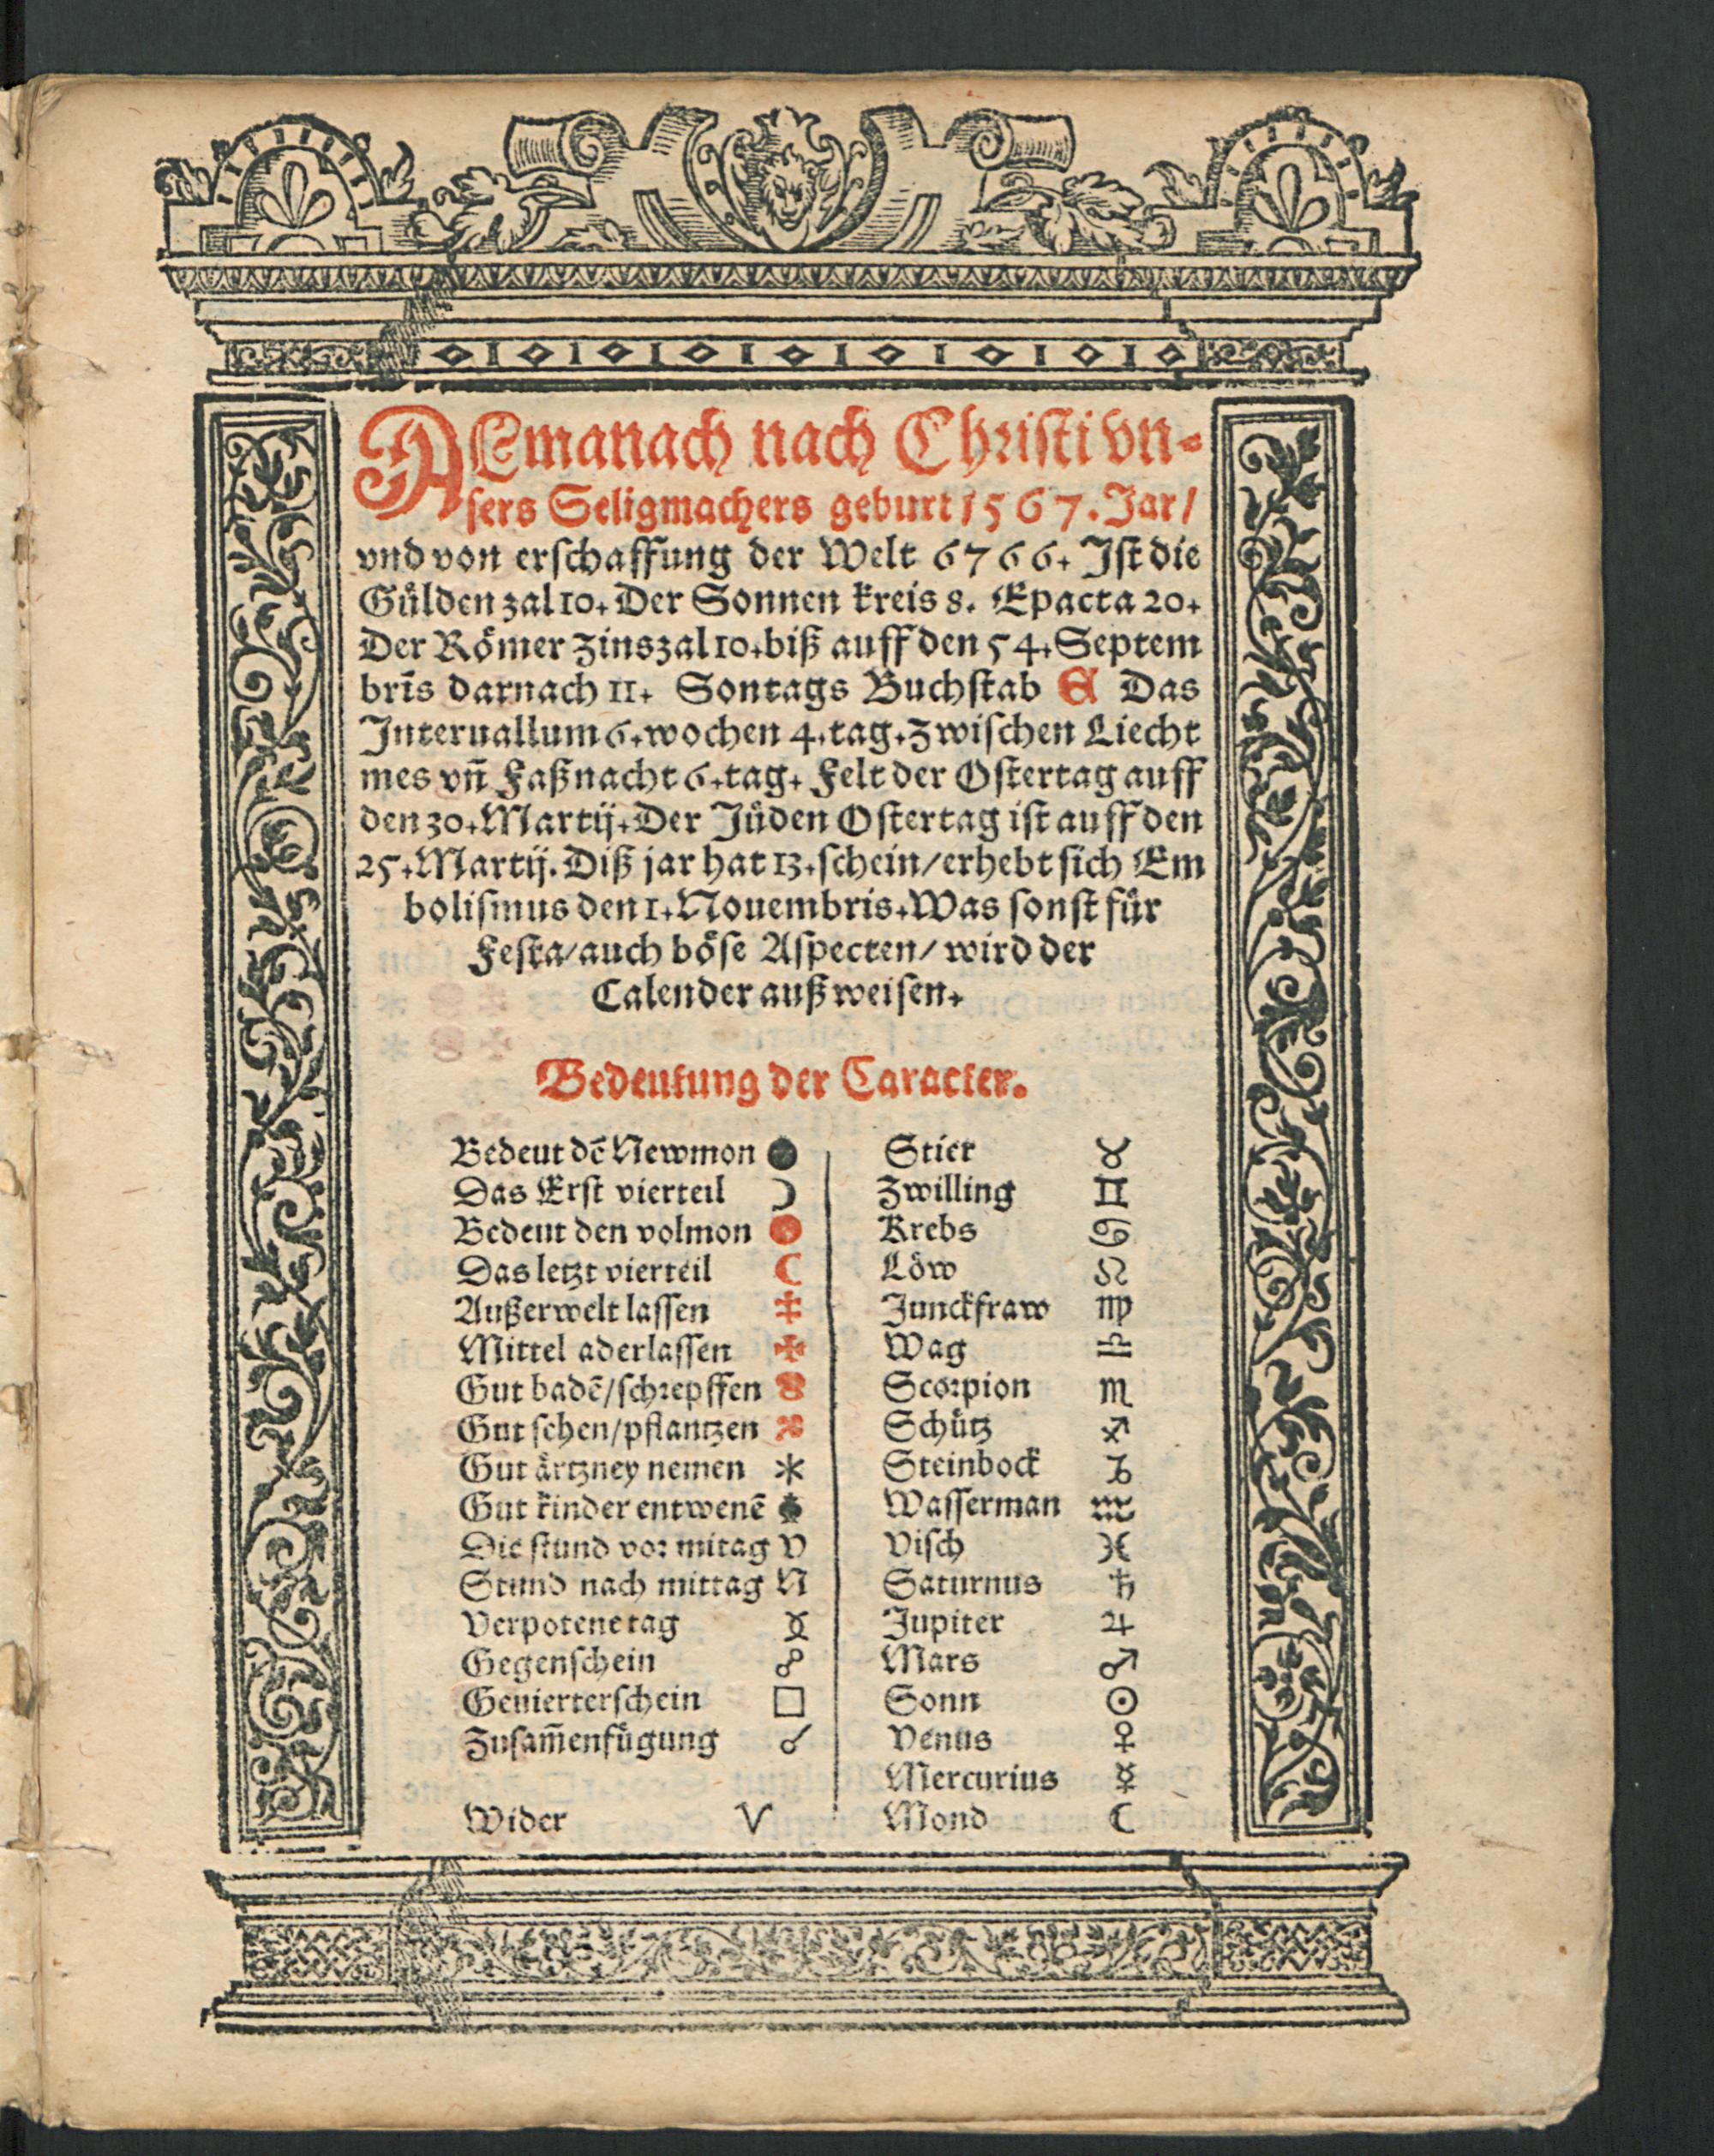 ALmanach nach Christi vn-
sers Seligmachers geburt 1567. Jar/
vnd von erschaffung der Welt 6766. Ist die
Gülden zal 10. Der Sonnen kreis 8. Epacta 20.
Der Römer Zinszal 10. biß auff den 54. Septem
bris darnach 11. Sontags Buchstab E Das
Interuallum 6. wochen 4. tag. Zwischen Liecht
mes vn̄ Faßnacht 6. tag. Felt der Ostertag auff
den 30. Martij. Der Jüden Ostertag ist auff den
25. Martij. Diß jar hat 13. schein/ erhebt sich Em
bolismus den 1. Nouembris. Was sonst für
Festa/ auch böse Aspecten/ wird der
Calender außweisen.
Bedeutung der Caracter.
Bedeut dē Newmon ●
Das Erst vierteil ☽
Bedeut den volmon ●
Das letzt vierteil ☾
Außerwelt lassen ‡
Mittel aderlassen ✠
Gut badē/schrepffen
Gut sehen/pflantzen
Gut ärtzney nemen *
Gut kinder entwenē
Die stund vor mitag V
Stund nach mittag N
Verpotene tag
Gegenschein ☍
Geuierterschein □
Zusam̄enfügung ☌
Wider ♈
Stier ♉
Zwilling ♊
Krebs ♋
Löw ♌
Junckfraw ♍
Wag ♎
Scorpion ♏
Schütz ♐
Steinbock ♑
Wasserman ♒
Visch ♓
Saturnus ♄
Jupiter ♃
Mars ♂
Sonn ☉
Venus ♀
Mercurius ☿
Mond ☾